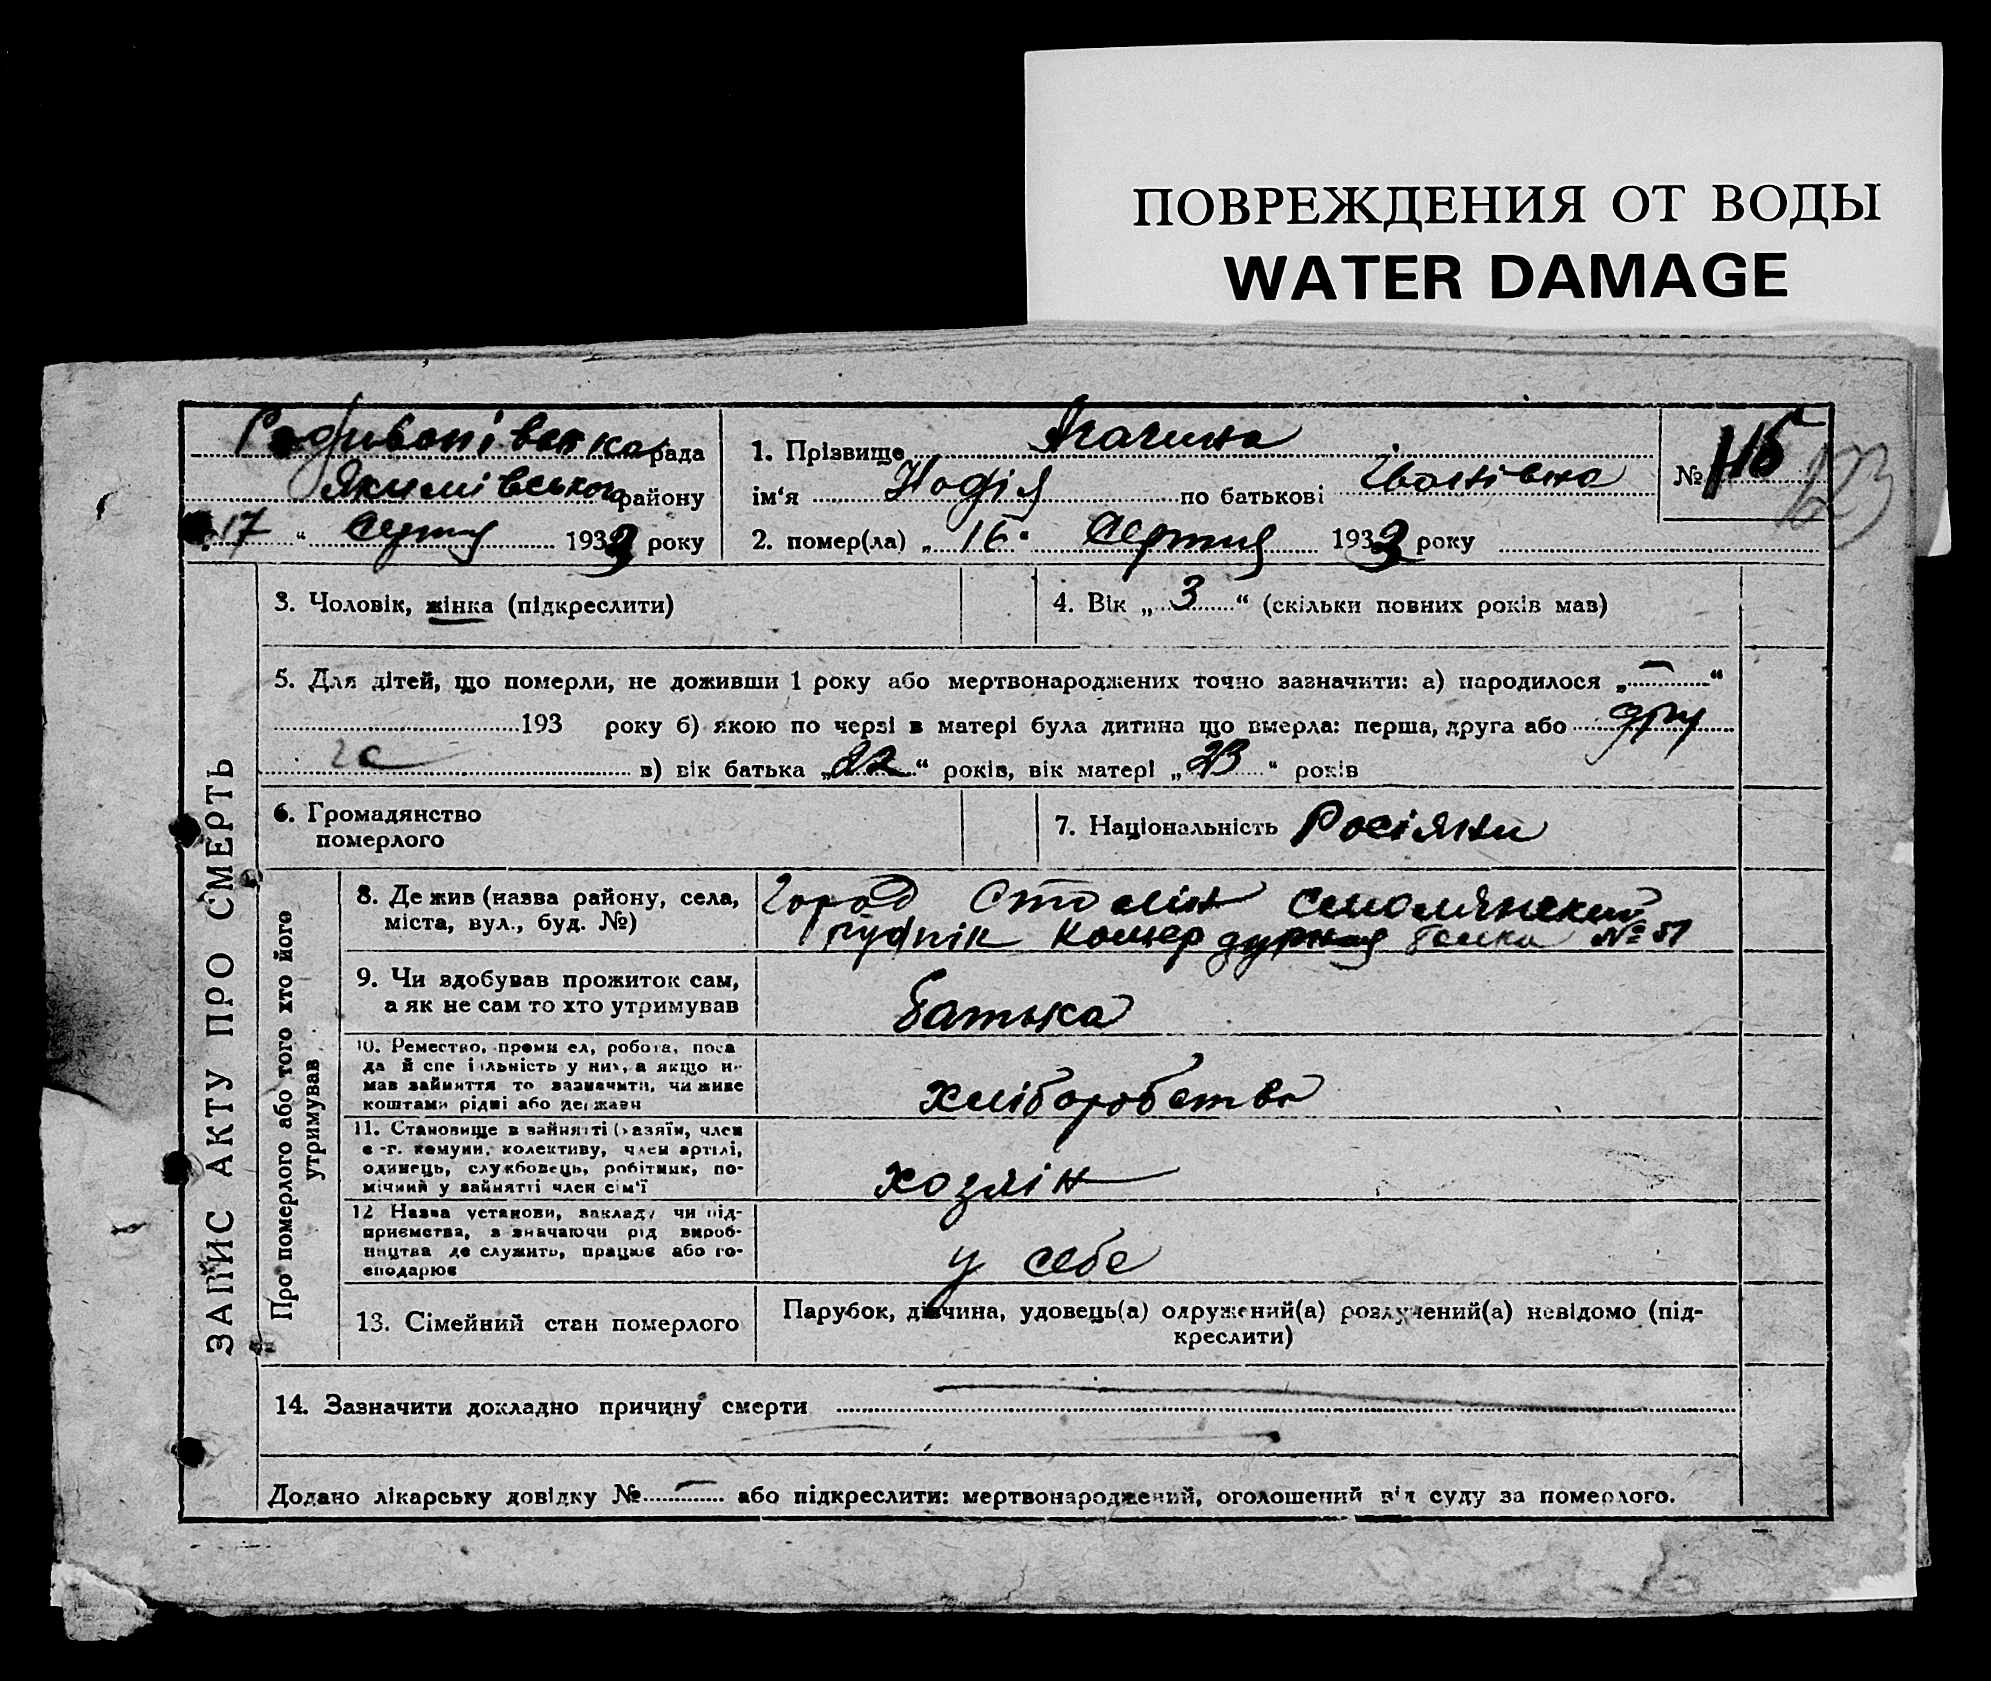 ПОВРЕЖДЕНИЯ ОТ ВОДЫ
WATER DAMAGE
Родивонівська рада
Якимівського району
17 " серпня 1933 року
1. Прізвище Агачина
ім'я Надія по батькові Іванівна
№ 115
123
2. помер(ла) „ 16 " серпня 1933 року
3. Чоловік, жінка (підкреслити)
4. Вік „ 3 “ (скільки повних років мав)
5. Для дітей, що померли, не доживши 1 року або мертвонароджених точно зазначити: а) народилося „ — “
193 року б) якою по черзі в матері була дитина що вмерла: перша, друга або дру
га в) вік батька „ 22 “ років, вік матері „ 23 “ років
6. Громадянство
померлого
7. Національність Росіяни
ЗАПИС АКТУ ПРО СМЕРТЬ
Про померлого або того хто його
утримував
8. Де жив (назва району, села,
міста, вул., буд. №)
Город Сталін Смолянский
рудник № 51
9. Чи здобував прожиток сам,
а як не сам то хто утримував
батька
10. Ремество, промисел, робота, поса
да й спеціяльність у них, а якщо н-
мав зайняття то зазначити, чи живе
коштами рідні або держави
хліборобство
11. Становище в зайнятті (хазяїн, член
с.-г. комуни, колективу, член артілі,
одинець, службовець, робітник, по-
мічний у зайнятті член сім'ї
хозяін
12 Назва установи, закладу чи під-
приємства, зазначаючи рід вироб-
ництва де служить, працює або го-
сподарює
у себе
13. Сімейний стан померлого
Парубок, дівчина, удовець(а) одружений(а) розлучений(а) невідомо (під-
креслити)
14. Зазначити докладно причину смерти
Додано лікарську довідку № — або підкреслити: мертвонароджений, оголошений від суду за померлого.